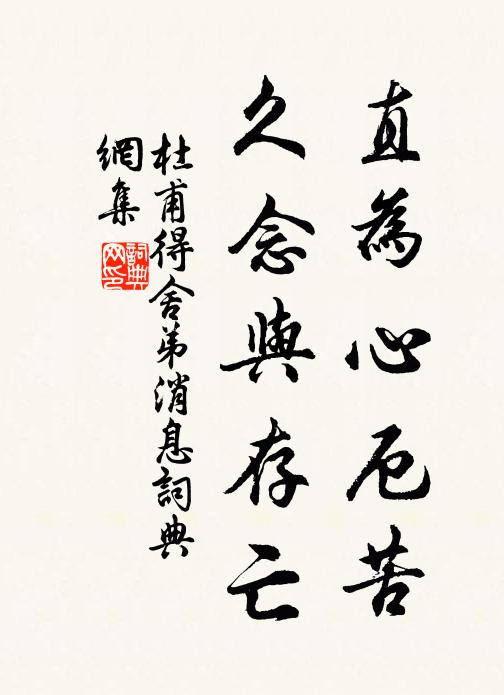 直為心厄苦
久念與存亡
杜甫得舍弟消息詞典
網集
詞典
网印